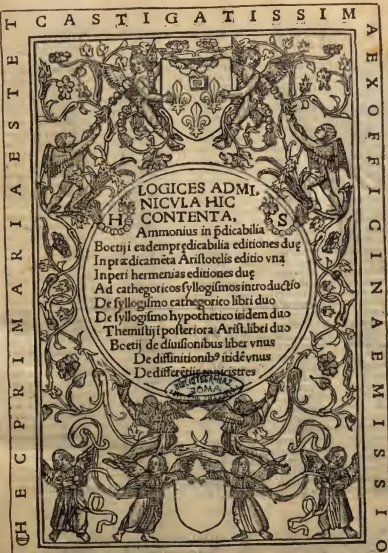 ¶HECPRIMARIAESTET
CASTIGATISSIM
AEXOFFICINAEMISSIO
LOGICES ADMI,
NICVLA HIC
H CONTENTA, S
Ammonius in p̄dicabilia
Boetij i eadem prędicabilia editiones duę
In prædicamēta Aristotelis editio vna
In peri hermenias editiones duę
Ad cathegoricos syllogismos introductio
De syllogismo cathegorico libri duo
De syllogismo hypothetico itidem duo
Themistij i posteriora Arist, libri duo
Boetij de diuisionibus liber vnus
De diffinitionibꝰ itidē vnus
De differētijs topicis tres
ROMA